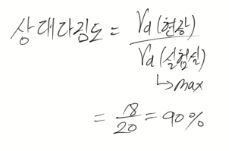 상대다짐도 = γd (현장) / γd (실험실)
↳ max
= 18/20 = 90%